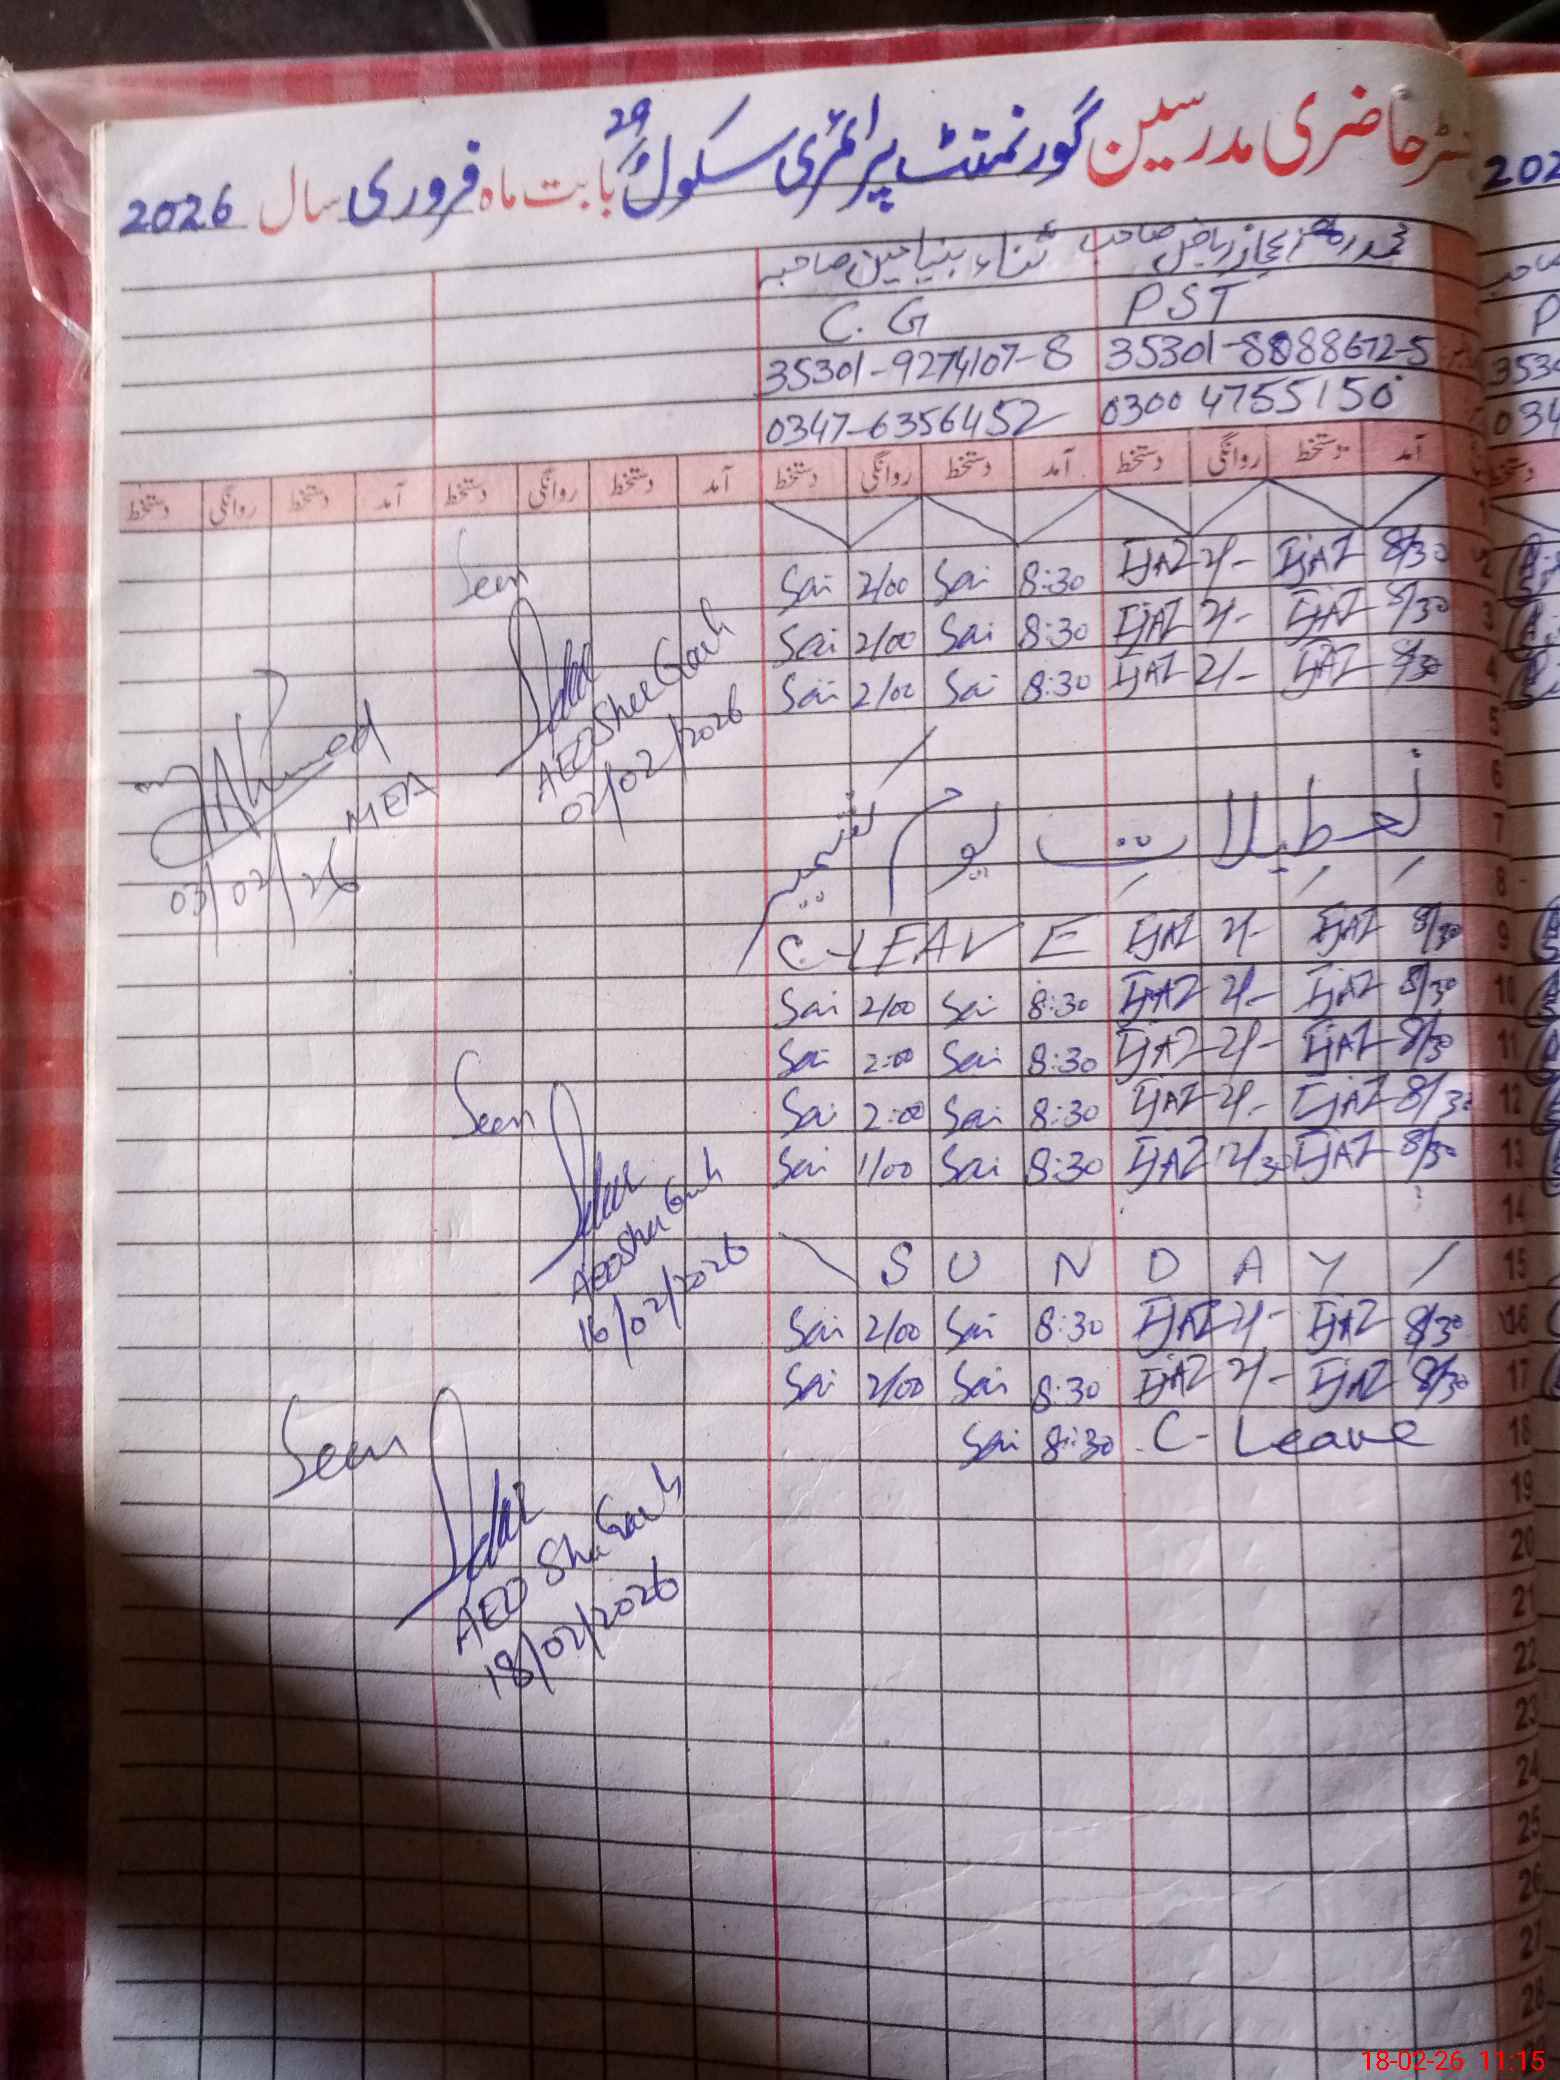 حاضری مدرسین گورنمنٹ پرائمری سکول 29 بابت ماہ فروری سال 2026
202
ثناء بنیامین صاحبہ
C.G PST
35301-9274107-8 35301-8088672-5 3530
0347-6356452 0300 4755150 034
آمد دستخط روانگی دستخط آمد دستخط روانگی دستخط آمد دستخط روانگی دستخط آمد دستخط روانگی دستخط
Sai 2/00 Sai 8:30 IJAZ 2/- IJAZ 8/30 2
Sai 2/00 Sai 8:30 IJAZ 2/- IJAZ 8/30 3
Sai 2/00 Sai 8:30 IJAZ 2/- IJAZ 8/30 4
5
6
تعطیلات یوم کشمیر 7
8
C-LEAVE IJAZ 2/- IJAZ 8/30 9
Sai 2/00 Sai 8:30 IJAZ 2/- IJAZ 8/30 10
Sai 2:00 Sai 8:30 IJAZ 2/- IJAZ 8/30 11
Sai 2:00 Sai 8:30 IJAZ 2/- IJAZ 8/30 12
Sai 1/00 Sai 8:30 IJAZ 12/30 IJAZ 8/30 13
14
SUNDAY 15
Sai 2/00 Sai 8:30 IJAZ 2/- IJAZ 8/30 16
Sai 2/00 Sai 8:30 IJAZ 2/- IJAZ 8/30 17
Sai 8:30 C-Leave 18
19
20
21
22
23
24
25
26
27
28
Seen
AEO
02/02/2026
Ahmed
MEA
03/02/26
Seen
AEO
16/02/2026
Seen
AEO
18/02/2026
18-02-26 11:15